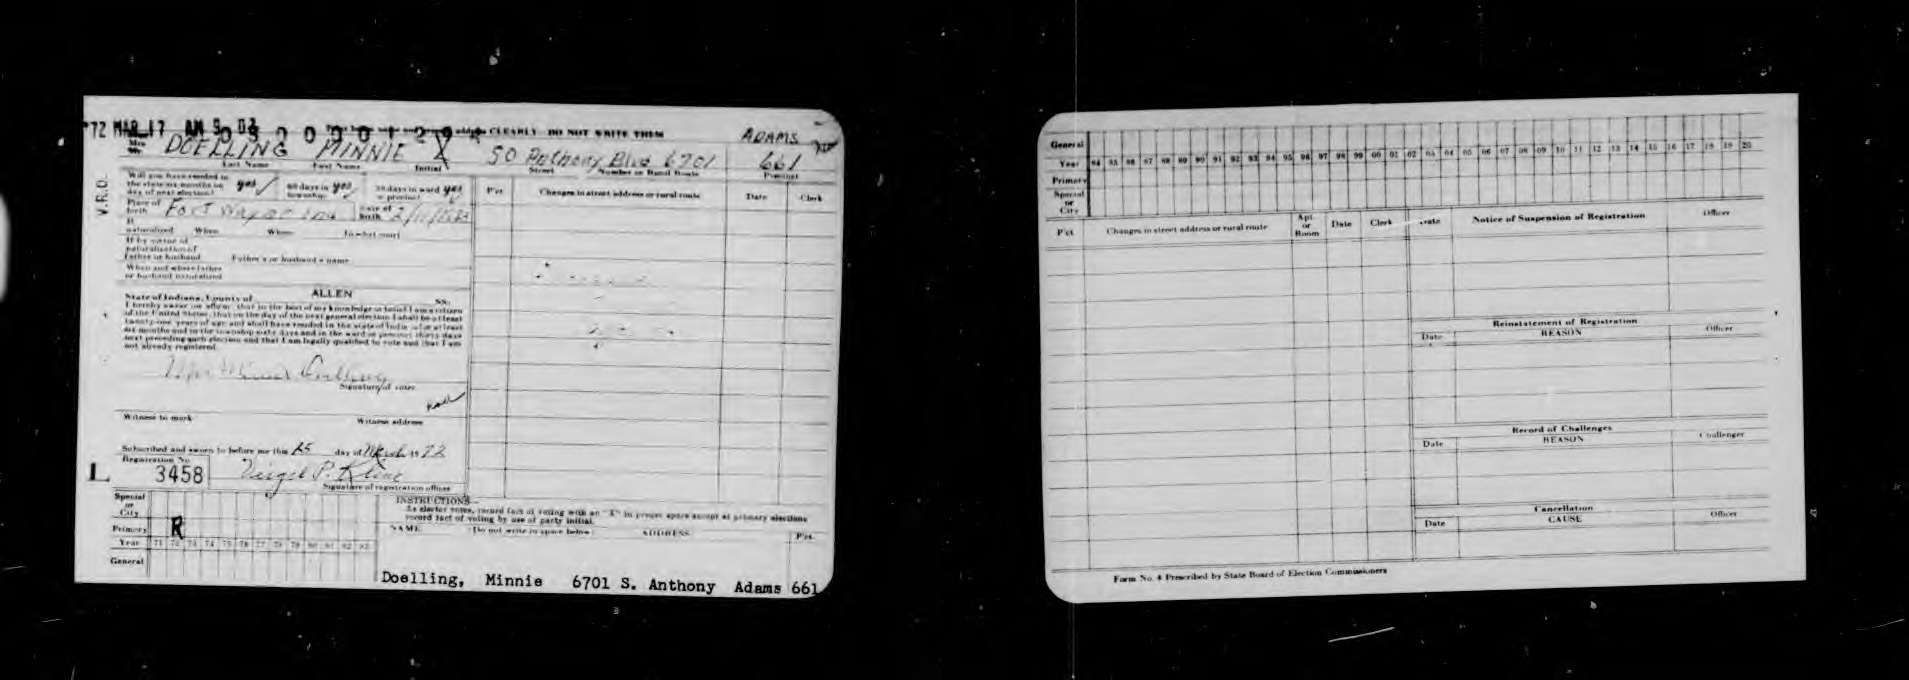 '72 MAR 17 AM 9 03
CLEARLY DO NOT WRITE THEM
ADAMS
Mrs DOELLING MINNIE X SO Anthony Blvd 6701 661
Last Name First Name Initial Street Number or Rural Route Precinct
V.R.D.
Will you have resided in
the state six months on yes 60 days in yes 30 days in ward yes
day of next election? township or precinct
P'ct. Changes in street address or rural route Date Clerk
Place of Date of
birth Fort Wayne Ind birth
If
naturalized When Where In what court
If by virtue of
naturalization of
father or husband Father's or husband's name
When and where father
or husband naturalized
State of Indiana, County of ALLEN SS:
I hereby swear or affirm, that to the best of my knowledge or belief I am a citizen
of the United States, that on the day of the next general election I shall be at least
twenty-one years of age and shall have resided in the state of Indiana at least
six months and in the township sixty days and in the ward or precinct thirty days
next preceding such election and that I am legally qualified to vote and that I am
not already registered.
Mrs Minnie Doelling
Signature of voter
Witness to mark Witness address
Subscribed and sworn to before me this day of March 1972
Registration No.
L 3458 Virgil P. Kline
Signature of registration officer
Special
or
City
Primary R
Year 71 72 73 74 75 76 77 78 79 80 81 82 83
General
INSTRUCTIONS
As elector votes, record fact of voting with an "X" in proper space except at primary elections
record fact of voting by use of party initial.
NAME (Do not write in space below) ADDRESS P'ct.
Doelling, Minnie 6701 S. Anthony Adams 661
General
Year 84 85 86 87 88 89 90 91 92 93 94 95 96 97 98 99 00 01 02 03 04 05 06 07 08 09 10 11 12 13 14 15 16 17 18 19 20
Primary
Special
or
City
P'ct. Changes in street address or rural route Apt. or Room Date Clerk Date Notice of Suspension of Registration Officer
Reinstatement of Registration
Date REASON Officer
Record of Challenges
Date REASON Challenger
Cancellation
Date CAUSE Officer
Form No. 4 Prescribed by State Board of Election Commissioners